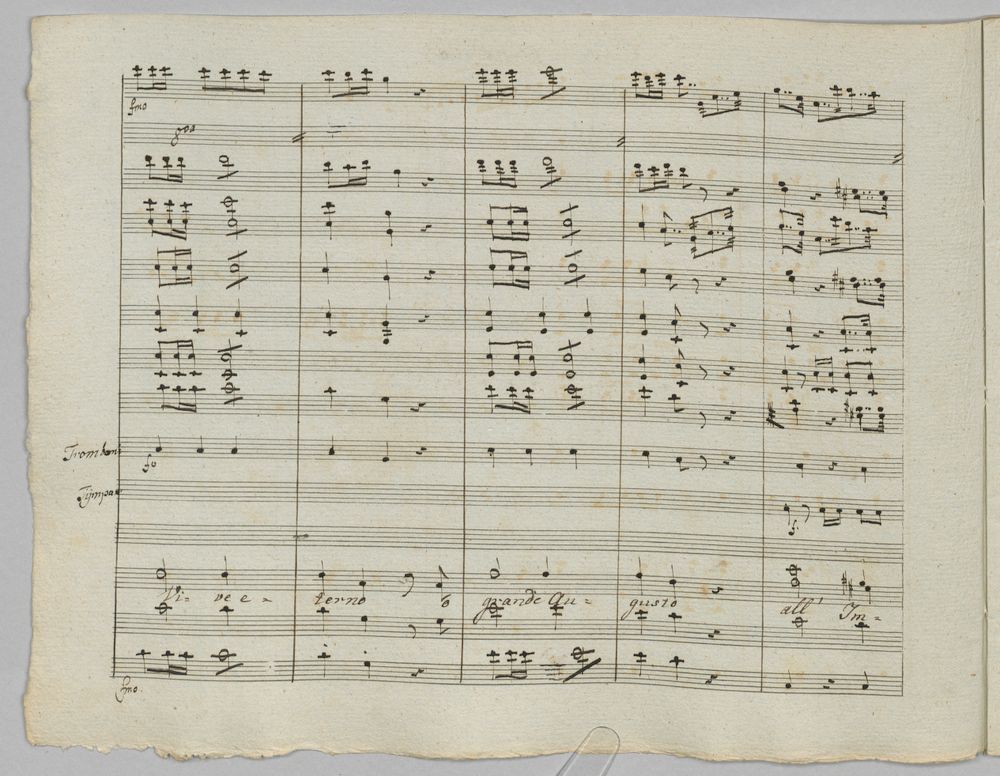 fmo
Tromboni
fo
Timpa
f.
Vi- ve e- terno o grande Au- gusto all' Im-
fmo.